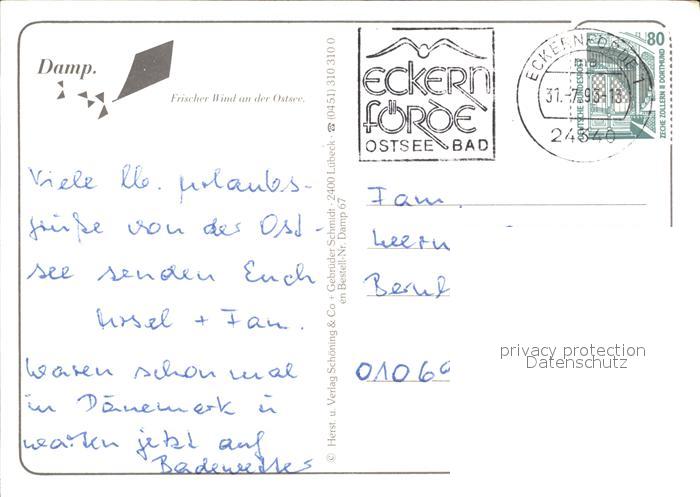 Damp.
Frischer Wind an der Ostsee.
Viele lb. Urlaubs-
grüße von der Ost-
see senden Euch
Ursel + Fam.
Waren schon mal
in Dänemark u
warten jetzt auf
Badewetter
© Herst. u. Verlag Schöning & Co + Gebrüder Schmidt · 2400 Lübeck · ☎ (0451) 310 310 0
en Bestell-Nr. Damp 67
ECKERN
FÖRDE
OSTSEE BAD
ECKERNFÖRDE 1
24340
80
DEUTSCHE BUNDESPOST
ZECHE ZOLLERN II DORTMUND
Fam.
privacy protection
Datenschutz